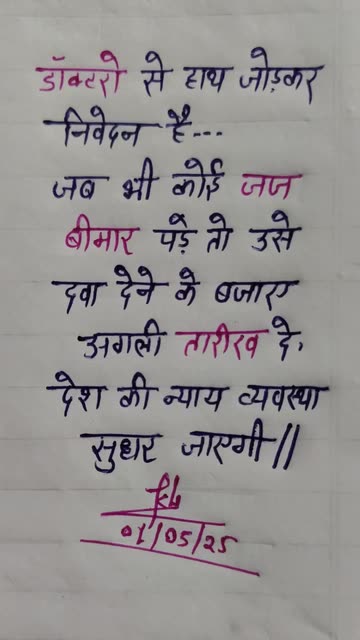 डॉक्टरो से हाथ जोड़कर
निवेदन है---
जब भी कोई जज
बीमार पड़े तो उसे
दवा देने के बजाए
अगली तारीख दे,
देश की न्याय व्यवस्था
सुधर जाएगी //
01/05/25